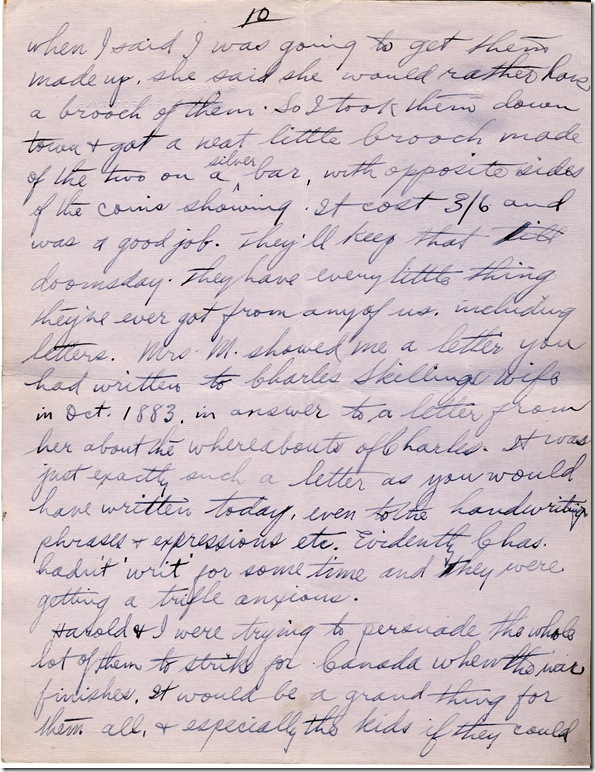 10
when I said I was going to get them
made up, she said she would rather have
a brooch of them. So I took them down
town & got a neat little brooch made
of the two on a silver bar, with opposite sides
of the coins showing. It cost 3/6 and
was a good job. They'll keep that till
doomsday. They have every little thing
they've ever got from any of us, including
letters. Mrs. M. showed me a letter you
had written to Charles Skillings wife
in Oct. 1883, in answer to a letter from
her about the whereabouts of Charles. It was
just exactly such a letter as you would
have written today, even to the handwriting
phrases & expressions etc. Evidently Chas.
hadn't 'writ' for some time and they were
getting a trifle anxious.
Harold & I were trying to persuade the whole
lot of them to strike for Canada when the war
finishes. It would be a grand thing for
them all, & especially the kids if they could